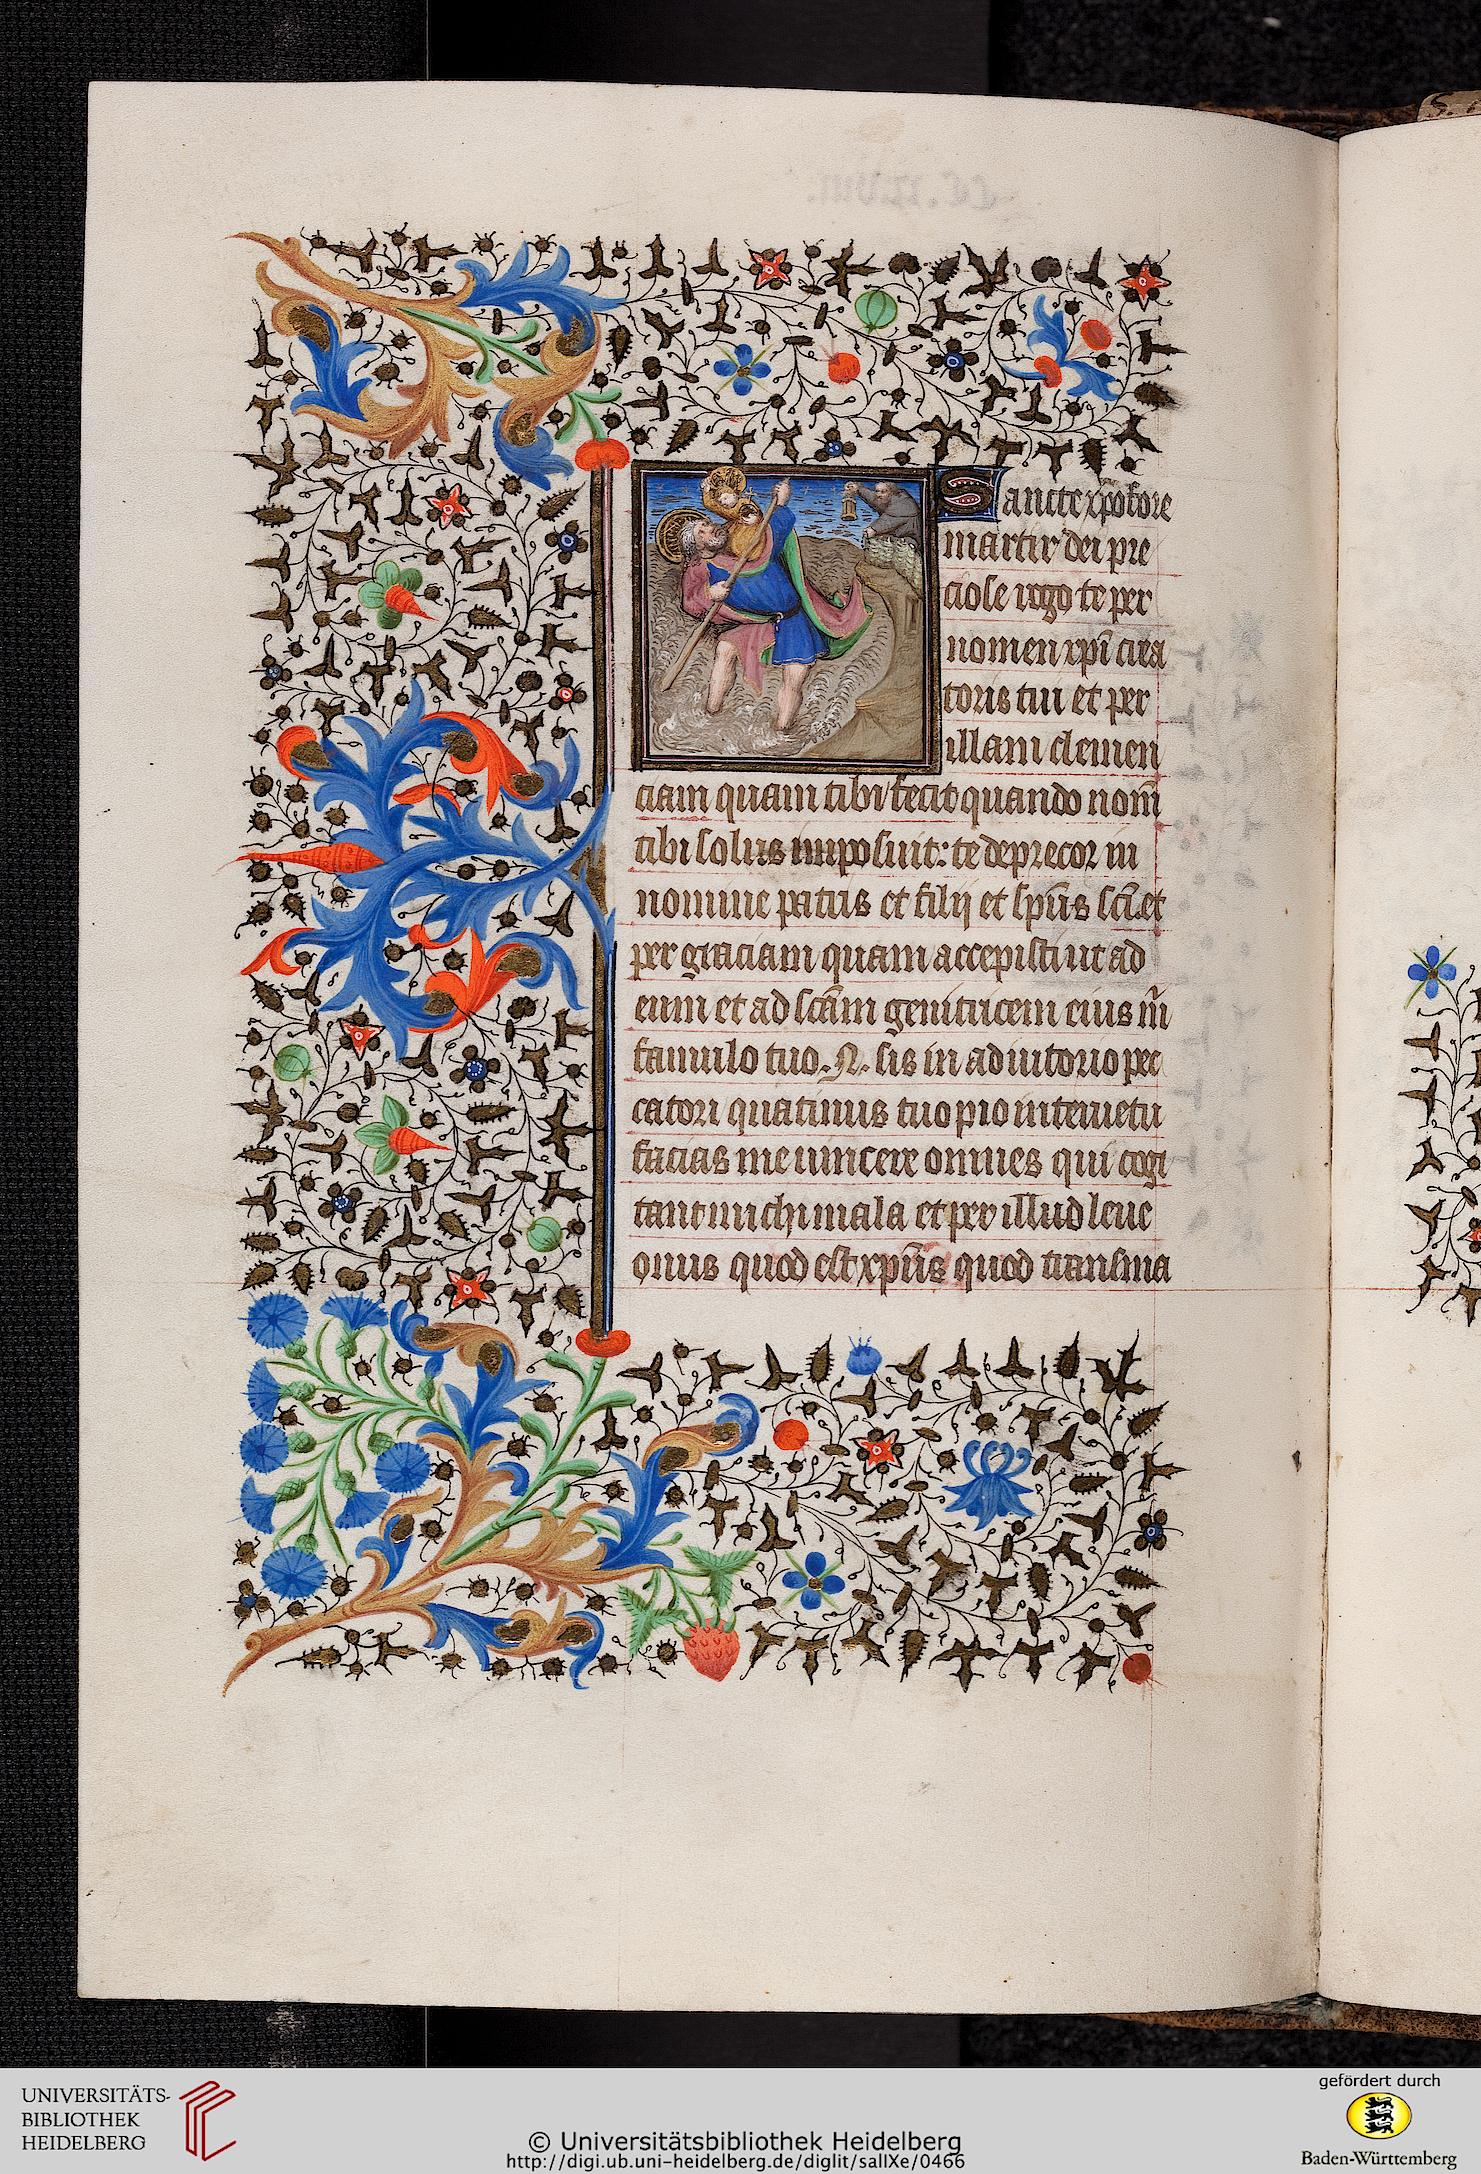 Sancte xp̄ofore
martir dei pre
ciose rogo te per
nomen xp̄i crea
toris tui et per
illam clemen
ciam quam tibi fecit quando nom̄
tibi solus imposuit: te deprecor in
nomine patris et filij et sp̄us sc̄i. et
per graciam quam accepisti ut ad
eum et ad sc̄am genitricem eius m̄
famulo tuo .N. sis in adiutorio pec
catori quatinus tuo pio interuetu
facias me uincere omnes qui cogi
tant michi mala et per illud leue
onus quod est xp̄us quod transma
UNIVERSITÄTS-
BIBLIOTHEK
HEIDELBERG
© Universitätsbibliothek Heidelberg
http://digi.ub.uni-heidelberg.de/diglit/salIXe/0466
gefördert durch
Baden-Württemberg